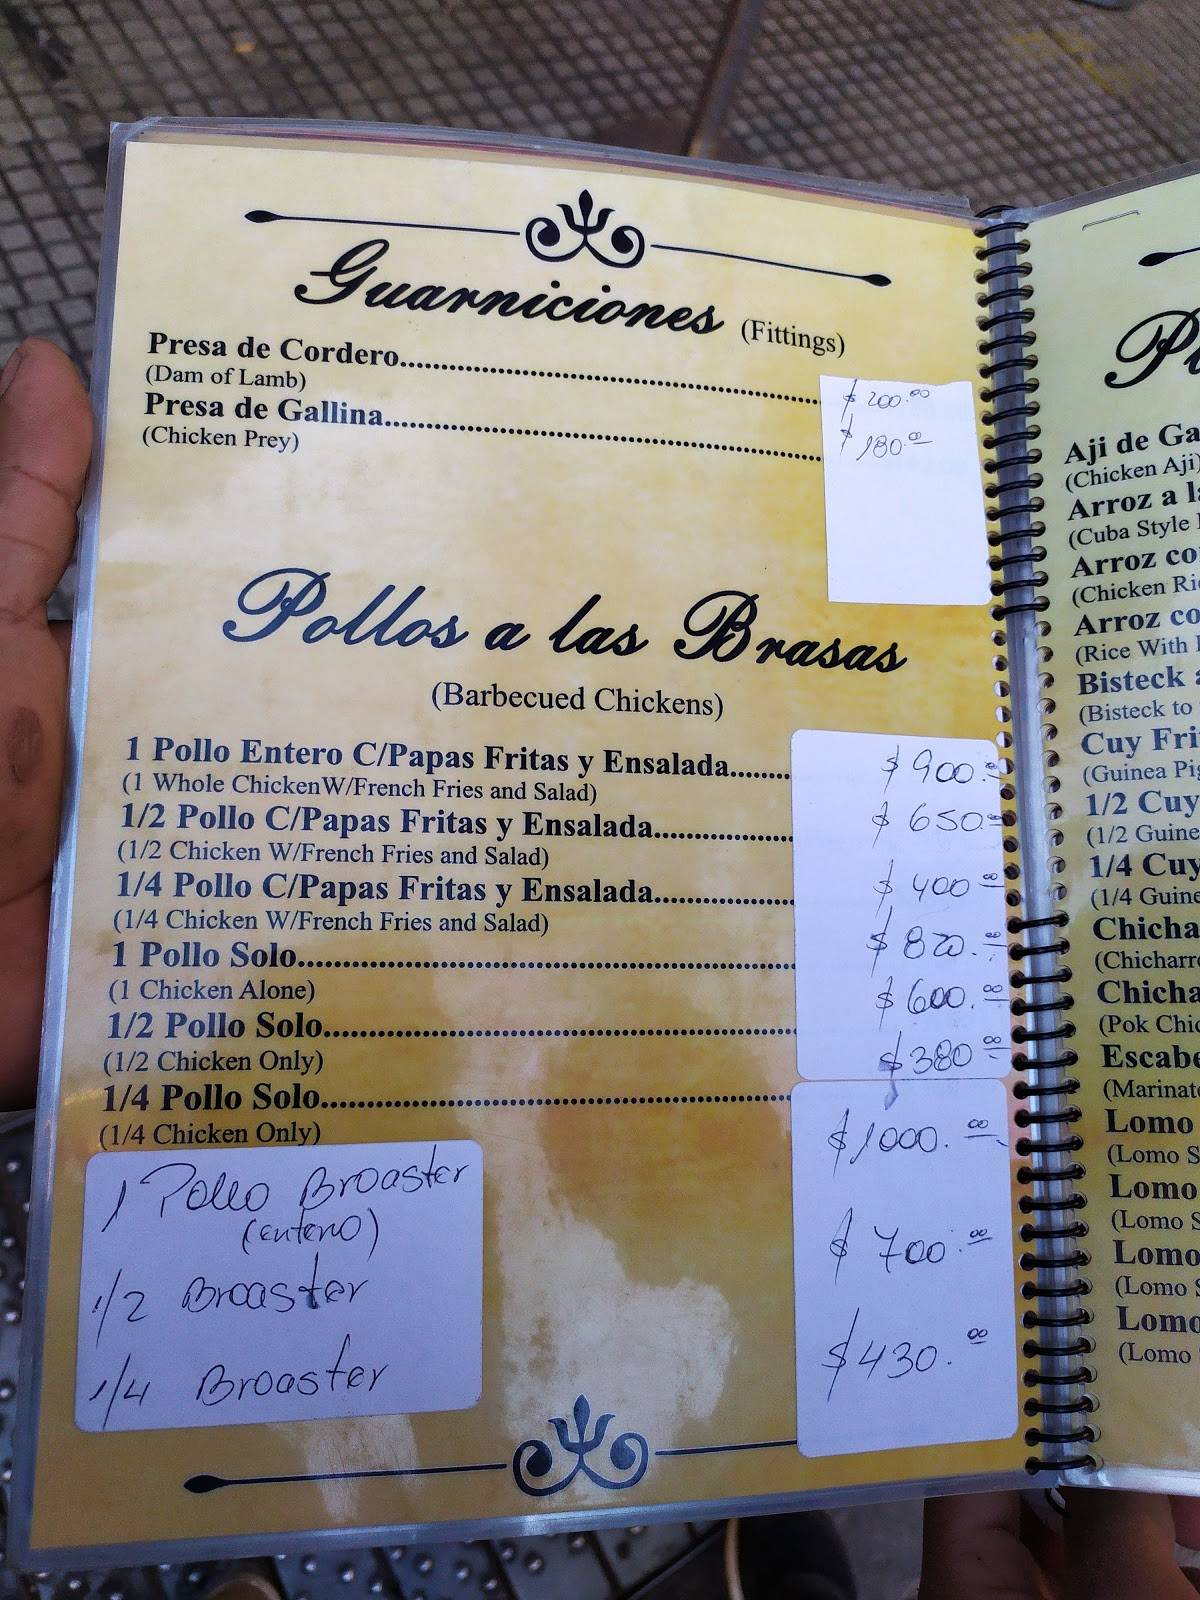 Guarniciones (Fittings)
Presa de Cordero.......... $ 200.00
(Dam of Lamb)
Presa de Gallina.......... $ 180.00
(Chicken Prey)
Pollos a las Brasas
(Barbecued Chickens)
1 Pollo Entero C/Papas Fritas y Ensalada........ $ 900.00
(1 Whole ChickenW/French Fries and Salad)
1/2 Pollo C/Papas Fritas y Ensalada.......... $ 650.00
(1/2 Chicken W/French Fries and Salad)
1/4 Pollo C/Papas Fritas y Ensalada.......... $ 400.00
(1/4 Chicken W/French Fries and Salad)
1 Pollo Solo.......... $ 820.00
(1 Chicken Alone)
1/2 Pollo Solo.......... $ 600.00
(1/2 Chicken Only)
1/4 Pollo Solo.......... $ 380.00
(1/4 Chicken Only)
1 Pollo Broaster $ 1000.00
(entero)
1/2 Broaster $ 700.00
1/4 Broaster $ 430.00
Aji de Ga
(Chicken Aji)
Arroz a la
(Cuba Style
Arroz co
(Chicken Ri
Arroz co
(Rice With
Bisteck a
(Bisteck to
Cuy Fri
(Guinea Pig
1/2 Cuy
(1/2 Guine
1/4 Cuy
(1/4 Guine
Chicha
(Chicharr
Chicha
(Pok Chic
Escabe
(Marinat
Lomo
(Lomo S
Lomo
(Lomo S
Lomo
(Lomo S
Lomo
(Lomo